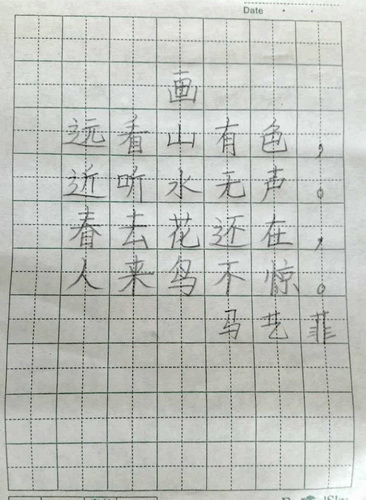 Date
画
远看山有色，
近听水无声。
春去花还在，
人来鸟不惊。
马艺菲